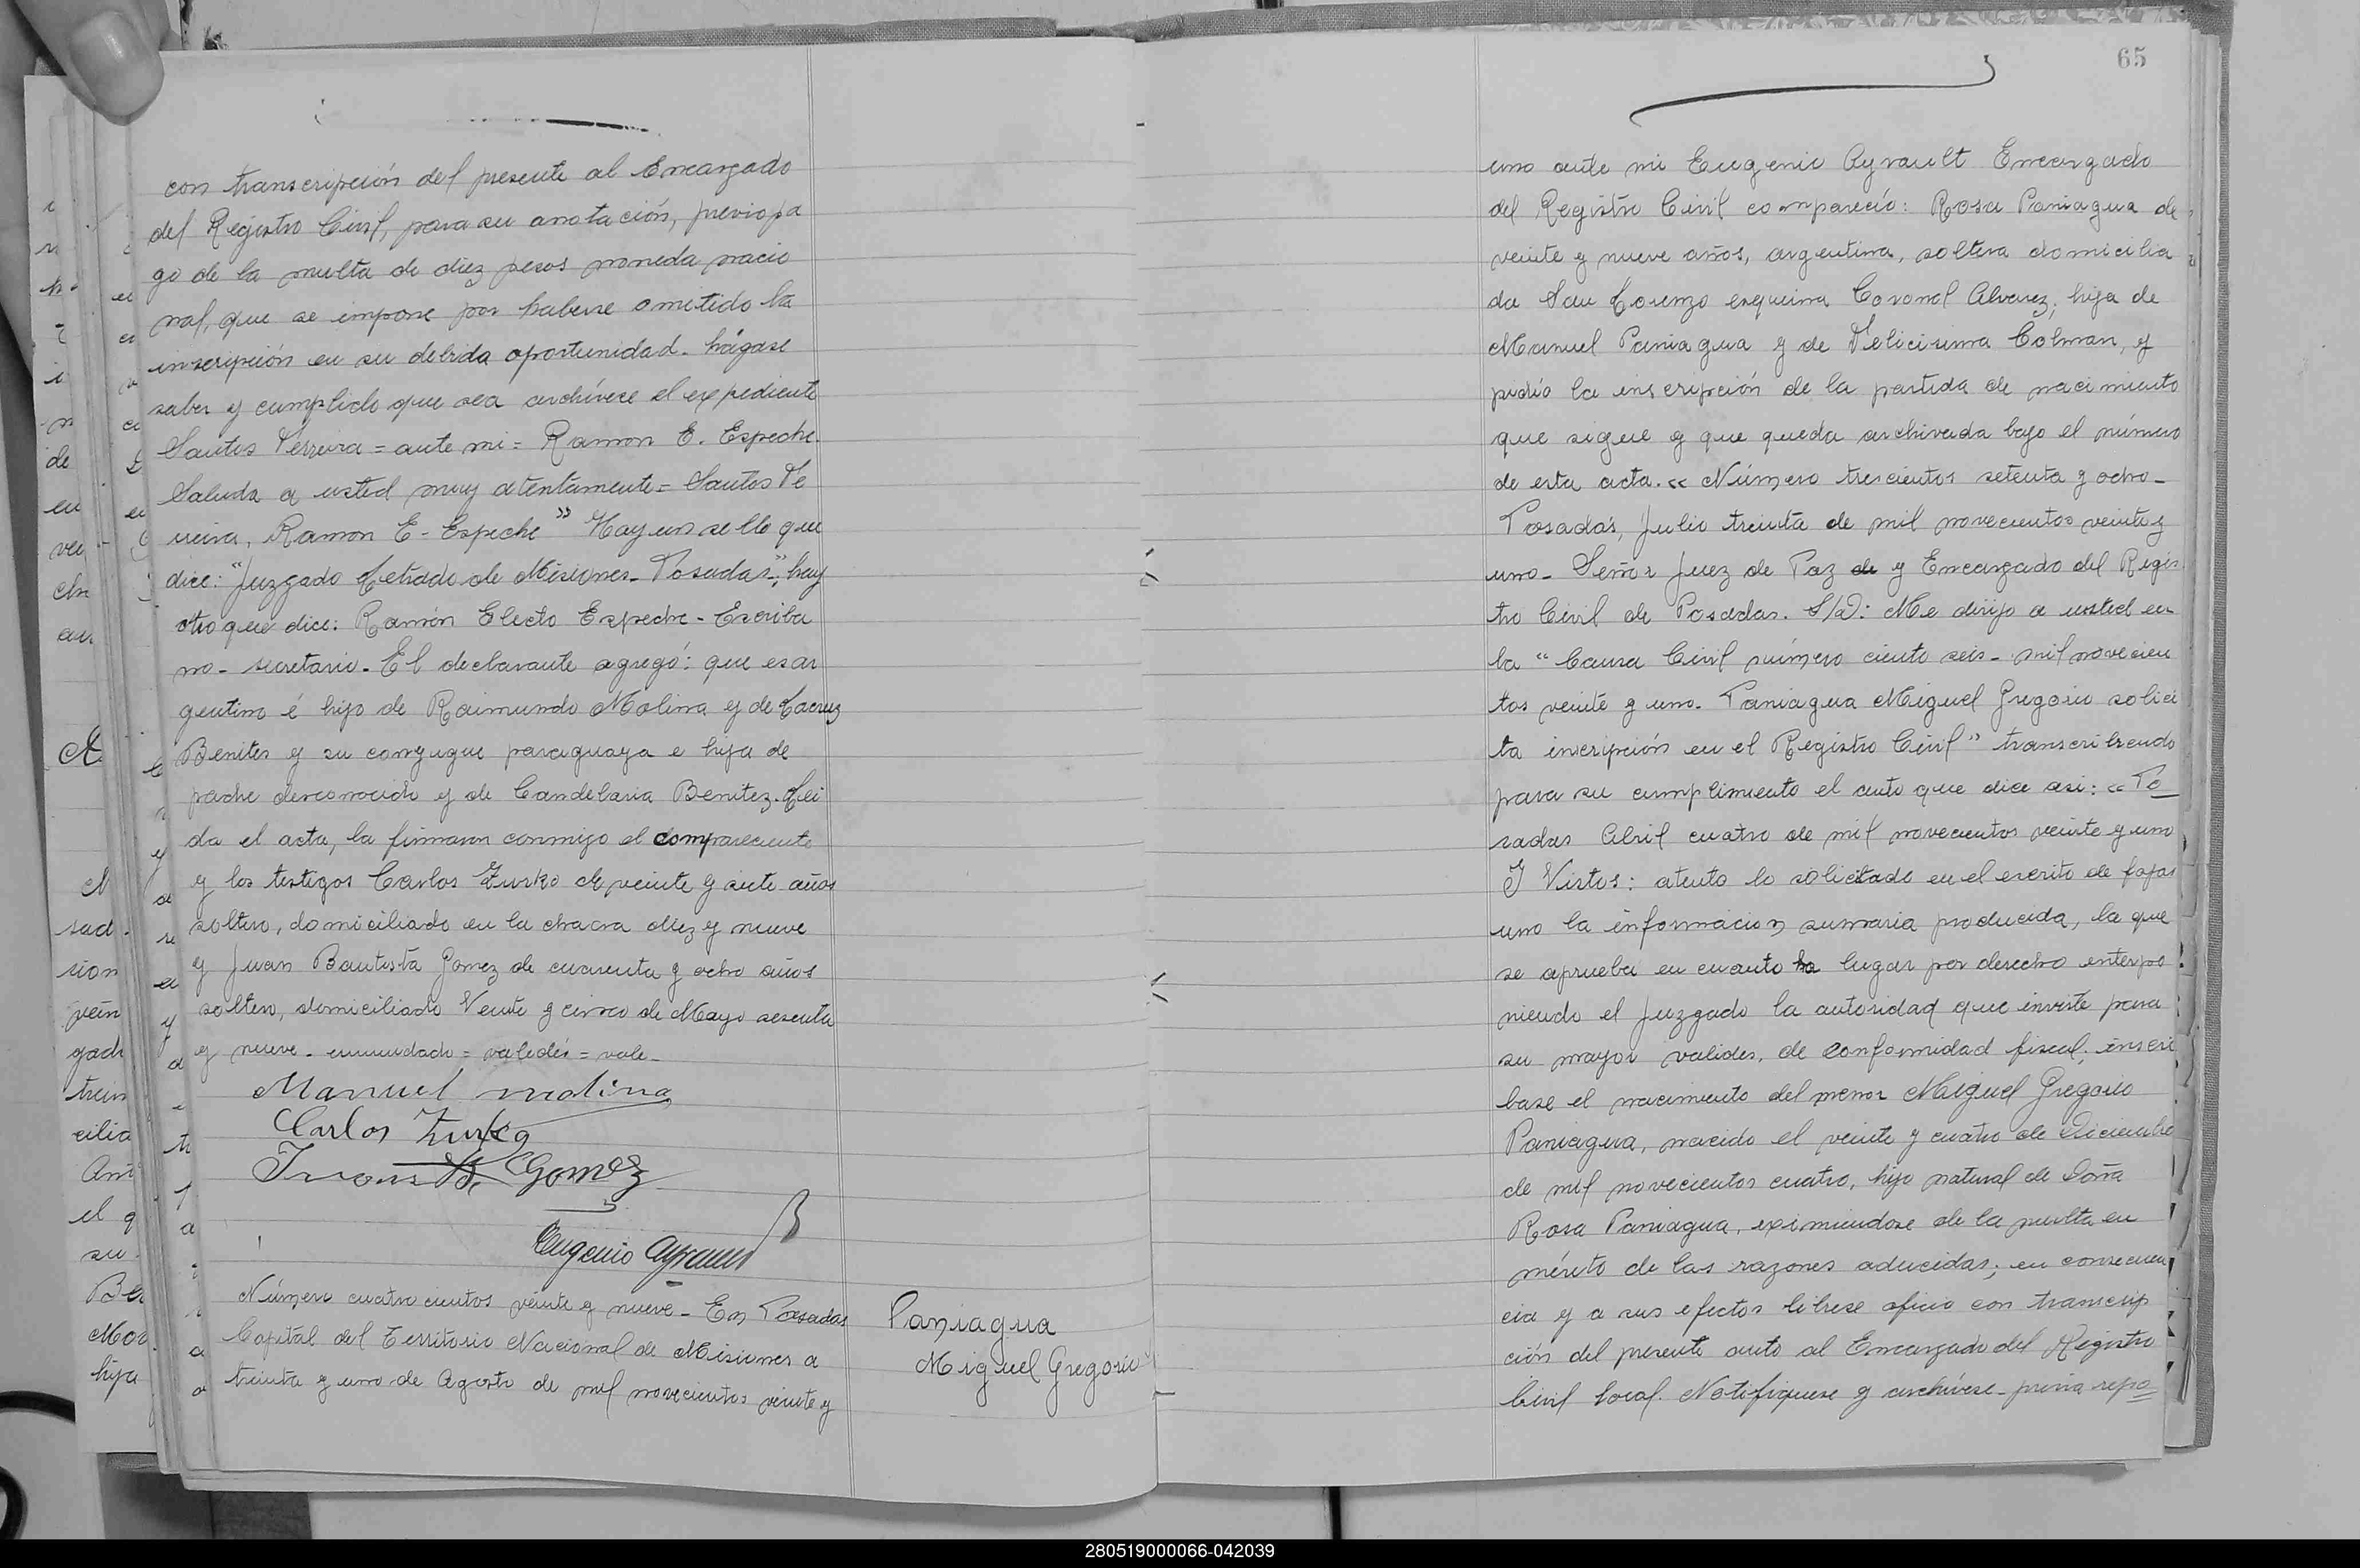 con transcripción del presente al Encargado
del Registro Civil, para su anotación, previo pa
go de la multa de diez pesos moneda nacio
nal, que se impone por haberse omitido la
inscripción en su debida oportunidad. hágase
saber y cumplido que sea archívese el expediente
Santos Ferreira = ante mi = Ramon E. Espeche.
Saluda a usted muy atentamente = Santos Fe
rreira, Ramon E. Espeche" Hay un sello que
dice: "Juzgado Letrado de Misiones - Posadas", hay
otro que dice: Ramón Electo Espeche - Escriba
no - secretario. El declarante agregó: que es ar
gentino é hijo de Raimundo Molina y de Lacruz
Benites y su conyugue paraguaya e hija de
padre desconocido y de Candelaria Benitez. Lei
da el acta, la firmaron conmigo el compareciente
y los testigos Carlos Zurko de veinte y siete años
soltero, domiciliado en la chacra diez y nueve
y Juan Bautista Gomez de cuarenta y ocho años
soltero, domiciliado Veinte y cinco de Mayo sesenta
y nueve - enmendado = validés = vale -
Manuel molina
Carlos Zurko
Juan B. Gomez
Eugenio Ayrault
Número cuatrocientos veinte y nueve - En Posadas
Capital del Territorio Nacional de Misiones a
treinta y uno de Agosto de mil novecientos veinte y
Paniagua
Miguel Gregorio
65
uno ante mi Eugenio Ayrault Encargado
del Registro Civil compareció: Rosa Paniagua de
veinte y nueve años, argentina, soltera domicilia
da San Lorenzo esquina Coronel Alvarez, hija de
Manuel Paniagua y de Felicisima Colman, y
pidió la inscripción de la partida de nacimiento
que sigue y que queda archivada bajo el número
de esta acta. « Número trescientos setenta y ocho -
Posadas, Julio treinta de mil novecientos veinte y
uno - Señor Juez de Paz de y Encargado del Regis
tro Civil de Posadas. S/D: Me dirijo a usted en
la "Causa Civil número ciento seis - mil novecien
tos veinte y uno. Paniagua Miguel Gregorio solici
ta inscripción en el Registro Civil" transcribiendo
para su cumplimiento el auto que dice asi: « Po
sadas Abril cuatro de mil novecientos veinte y uno
Y Vistos: atento lo solicitado en el escrito de fojas
uno la información sumaria producida, la que
se aprueba en cuanto ha lugar por derecho interpo
niendo el Juzgado la autoridad que inviste para
su mayor valides, de conformidad fiscal; inscri
base el nacimiento del menor Miguel Gregorio
Paniagua, nacido el veinte y cuatro de Diciembre
de mil novecientos cuatro, hijo natural de Doña
Rosa Paniagua, eximiendose de la multa en
mérito de las razones aducidas; en consecuen
cia y a sus efectos librese oficio con transcrip
ción del presente auto al Encargado del Registro
Civil local. Notifiquese y archívese - previa repo
280519000066-042039